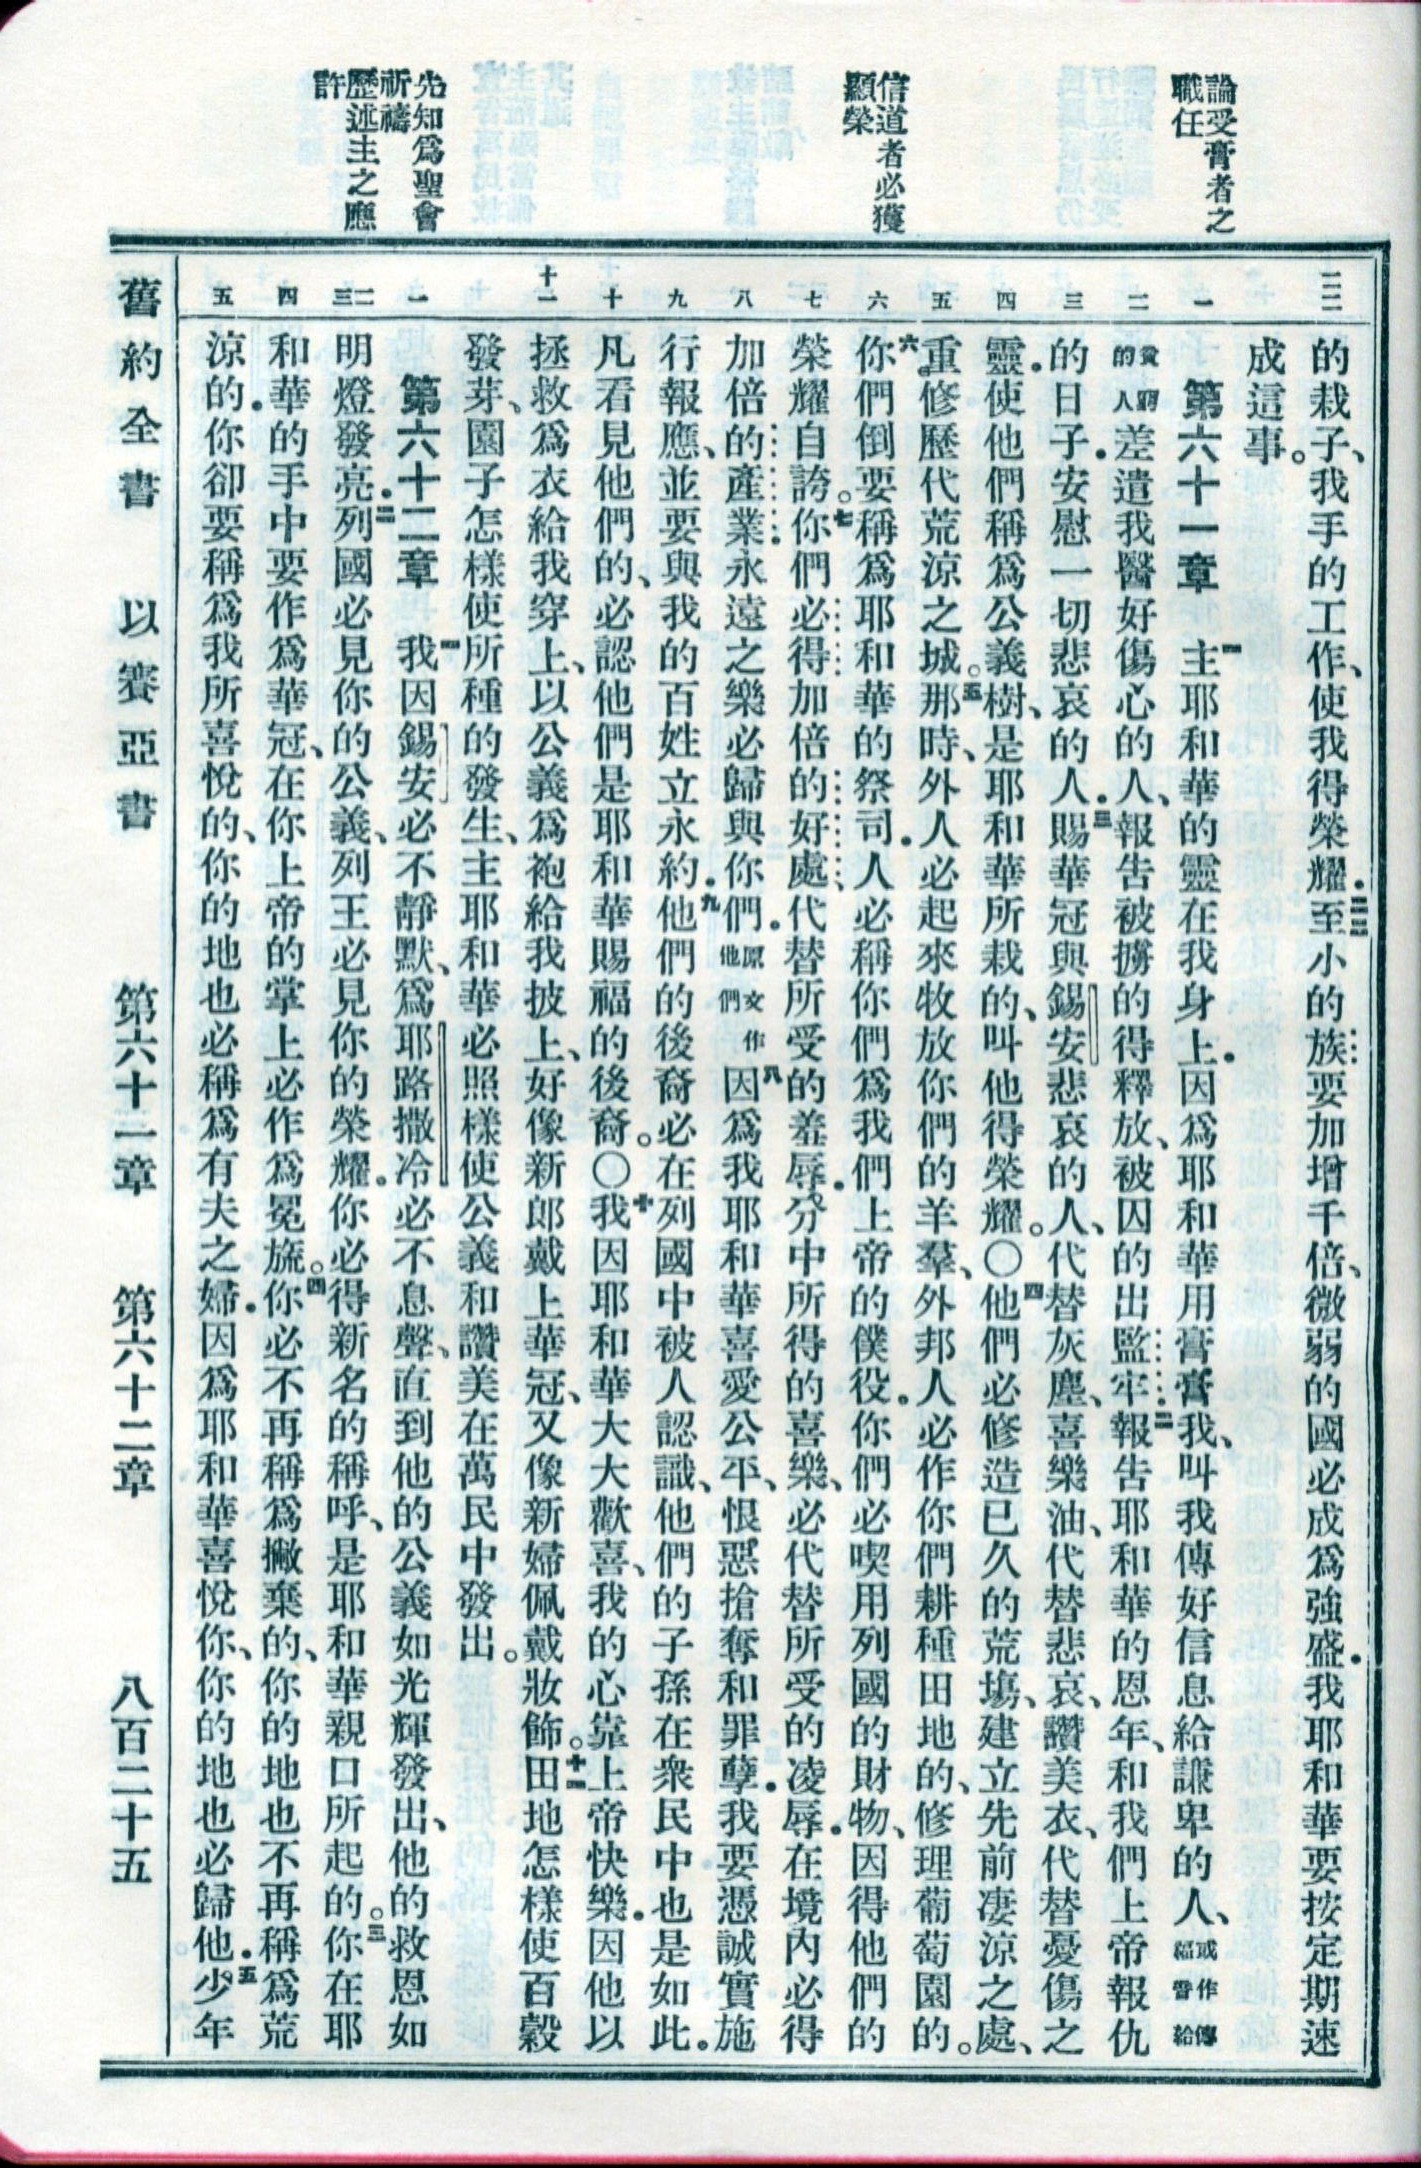 論受膏者之
職任
信道者必獲
顯榮
先知爲聖會
祈禱
歷述主之應
許
二二 一 二 三 四 五 六 七 八 九 十 十一 一 二三 四 五
的栽子、我手的工作、使我得榮耀．二二至小的族要加增千倍、微弱的國必成爲強盛．我耶和華要按定期速
成這事。
第六十一章 一主耶和華的靈在我身上．因爲耶和華用膏膏我、叫我傳好信息給謙卑的人、或作傳福音給
貧窮的人差遣我醫好傷心的人、報告被擄的得釋放、被囚的出監牢二報告耶和華的恩年、和我們上帝報仇
的日子．安慰一切悲哀的人．三賜華冠與錫安悲哀的人、代替灰塵、喜樂油、代替悲哀、讚美衣、代替憂傷之
靈．使他們稱爲公義樹、是耶和華所栽的、叫他得榮耀。〇四他們必修造已久的荒塲、建立先前凄涼之處、
重修歷代荒涼之城。五那時、外人必起來牧放你們的羊羣、外邦人必作你們耕種田地的、修理葡萄園的。
六你們倒要稱爲耶和華的祭司．人必稱你們爲我們上帝的僕役．你們必喫用列國的財物、因得他們的
榮耀自誇。七你們必得加倍的好處、代替所受的羞辱．分中所得的喜樂、必代替所受的凌辱．在境內必得
加倍的產業永遠之樂必歸與你們．原文作他們八因爲我耶和華喜愛公平、恨惡搶奪和罪孽．我要憑誠實施
行報應、並要與我的百姓立永約．九他們的後裔必在列國中被人認識、他們的子孫在衆民中也是如此．
凡看見他們的、必認他們是耶和華賜福的後裔。〇十我因耶和華大大歡喜、我的心靠上帝快樂．因他以
拯救爲衣給我穿上、以公義爲袍給我披上、好像新郎戴上華冠、又像新婦佩戴妝飾。十一田地怎樣使百穀
發芽、園子怎樣使所種的發生、主耶和華必照樣使公義和讚美在萬民中發出。
第六十二章 一我因錫安必不靜默、爲耶路撒冷必不息聲、直到他的公義如光輝發出、他的救恩如
明燈發亮．二列國必見你的公義、列王必見你的榮耀．你必得新名的稱呼、是耶和華親口所起的。三你在耶
和華的手中要作爲華冠、在你上帝的掌上必作爲冕旒。四你必不再稱爲撇棄的、你的地也不再稱爲荒
涼的．你卻要稱爲我所喜悅的、你的地也必稱爲有夫之婦．因爲耶和華喜悅你、你的地也必歸他．五少年
舊約全書 以賽亞書 第六十一章 第六十二章 八百二十五